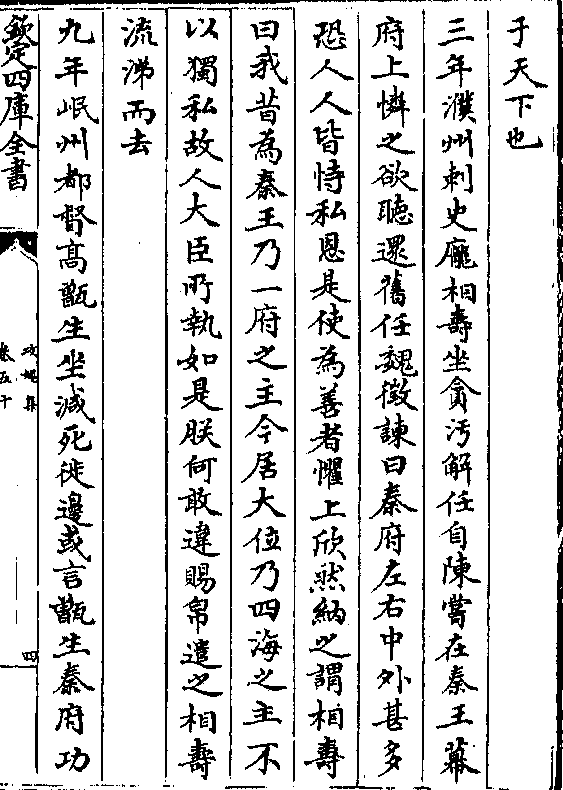 于天下也
三年濮州刺史龐相壽坐貪汚解任自陳嘗在秦王幕
府上憐之欲聽還舊任魏徵諫曰秦府左右中外甚多
恐人人皆恃私恩是使為善者懼上欣然納之謂相壽
曰我昔為秦王乃一府之主今居大位乃四海之主不
以獨私故人大臣所執如是朕何敢違賜帛遣之相壽
流涕而去
九年岷州都督髙甑生坐減死徙邊或言甑生秦府功
欽定四庫全書
攻媿集
卷五十
四